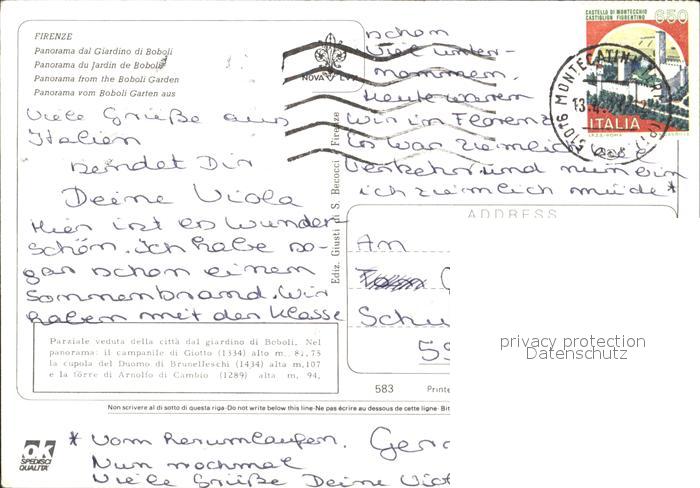 FIRENZE
Panorama dal Giardino di Boboli
Panorama du Jardin de Boboli
Panorama from the Boboli Garden
Panorama vom Boboli Garten aus
Viele Grüße aus
Italien
sendet Dir
Deine Viola
Hier ist es wunder-
schön. Ich habe so-
gar schon einen
Sonnenbrand. Wir
haben mit der Klasse
schon
viel unter-
nommen.
Heute waren
wir in Florenz
Es war ziemlich
Verkehr und nun bin
ich ziemlich müde *
NOVA LUX
Ediz. Giusti di S. Becocci - Firenze
CASTELLO DI MONTECCHIO
CASTIGLION FIORENTINO
650
ITALIA
51016 MONTECATINI
ADDRESS
An
Schu
privacy protection
Datenschutz
Parziale veduta della città dal giardino di Boboli. Nel
panorama: il campanile di Giotto (1334) alto m. 81,75
la cupola del Duomo di Brunelleschi (1434) alt m,107
e la torre di Arnolfo di Cambio (1289) alt. m, 94,
583 Printe
Non scrivere al di sotto di questa riga-Do not write below this line-Ne pas écrire au dessous de cette ligne- Bit
ok
SPEDISCI
QUALITA'
* Vom herumlaufen.
Nun nochmal
Viele Grüße Deine Viol